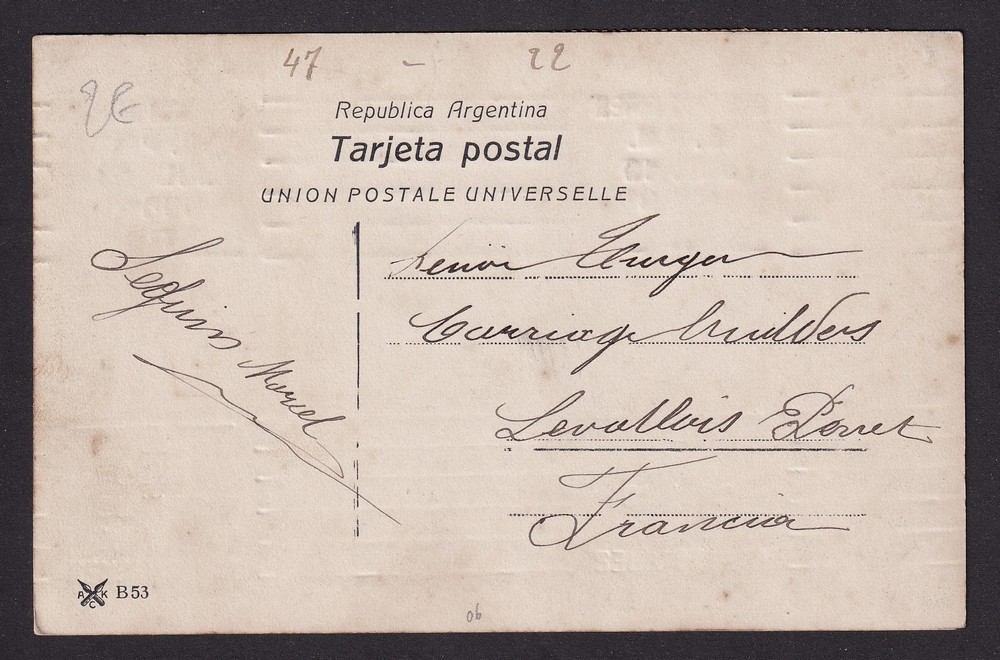 47 - 22
Republica Argentina
Tarjeta postal
UNION POSTALE UNIVERSELLE
Seguin Marcel
Senõr
Carriage builders
Levallois Perret
Francia
A K
C
B 53
06